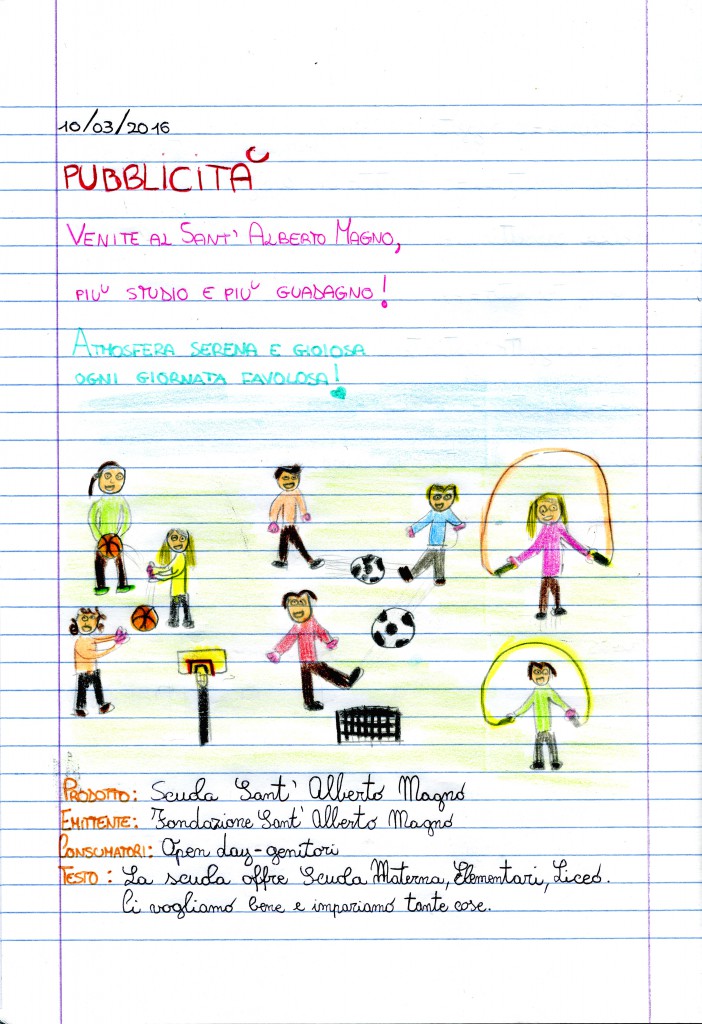 10/03/2016
PUBBLICITÀ
VENITE AL SANT' ALBERTO MAGNO,
PIÙ STUDIO E PIÙ GUADAGNO!
ATMOSFERA SERENA E GIOIOSA
OGNI GIORNATA FAVOLOSA!
PRODOTTO: Scuola Sant' Alberto Magno
EMITTENTE: Fondazione Sant' Alberto Magno
CONSUMATORI: Open day-genitori
TESTO: La scuola offre Scuola Materna, Elementari, Liceo.
Ci vogliamo bene e impariamo tante cose.